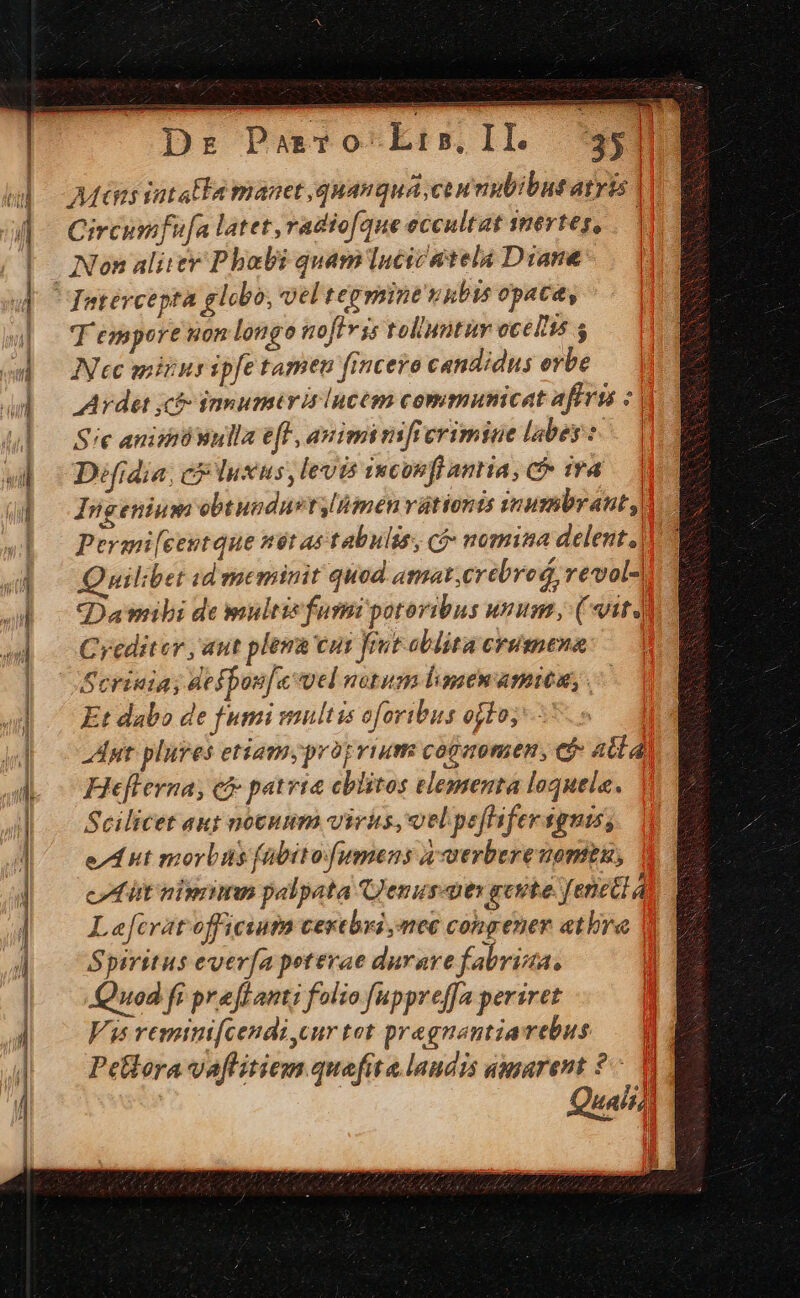 De Pæto Lib. II. 35
Mens intacta manet, quanquā, ceu nubibus atris
Circumfusa latet, radiosque occultat inertes,
Non aliter Phœbi quam lucic atela Dianæ
Intercepta globo, vel tegmine nubis opacæ,
Tempore non longo nostris tolluntur ocellis ;
Nec minus ipse tamen sincero candidus orbe
Ardet, & innumeris lucem communicat astris :
Sic animô nulla est, animi nisi crimine labes :
Desidia, & luxus, levis inconstantia, & ira
Ingenium obtundunt, lumen rationis inumbrant,
Permiscentque notas tabulis, & nomina delent.
Quilibet id meminit quod amat, crebroq, revol-
Da mihi de multis fumi potoribus unum, ( vit.
Creditor, aut plena cui sint oblita crumena
Scrinia, desponsæ vel notum limen amicæ,
Et dabo de fumi multis osoribus octo,
Aut plures etiam, proprium cognomen, & acta
Hesterna, & patriæ oblitos elementa loquelæ.
Scilicet aut nocuum virus, vel pestifer ignis,
Aut morbus subito sumens à verbere nomen,
Aut nimium palpata Venus vergente senecta
Læserat officium cerebri, nec congener æthræ
Spiritus eversa poterat durare fabrica.
Quod si præstanti folio suppressa periret
Vis reminiscendi, cur tot prægnantia rebus
Pectora vastitiem quæsitæ laudis amarent ?
Quali,